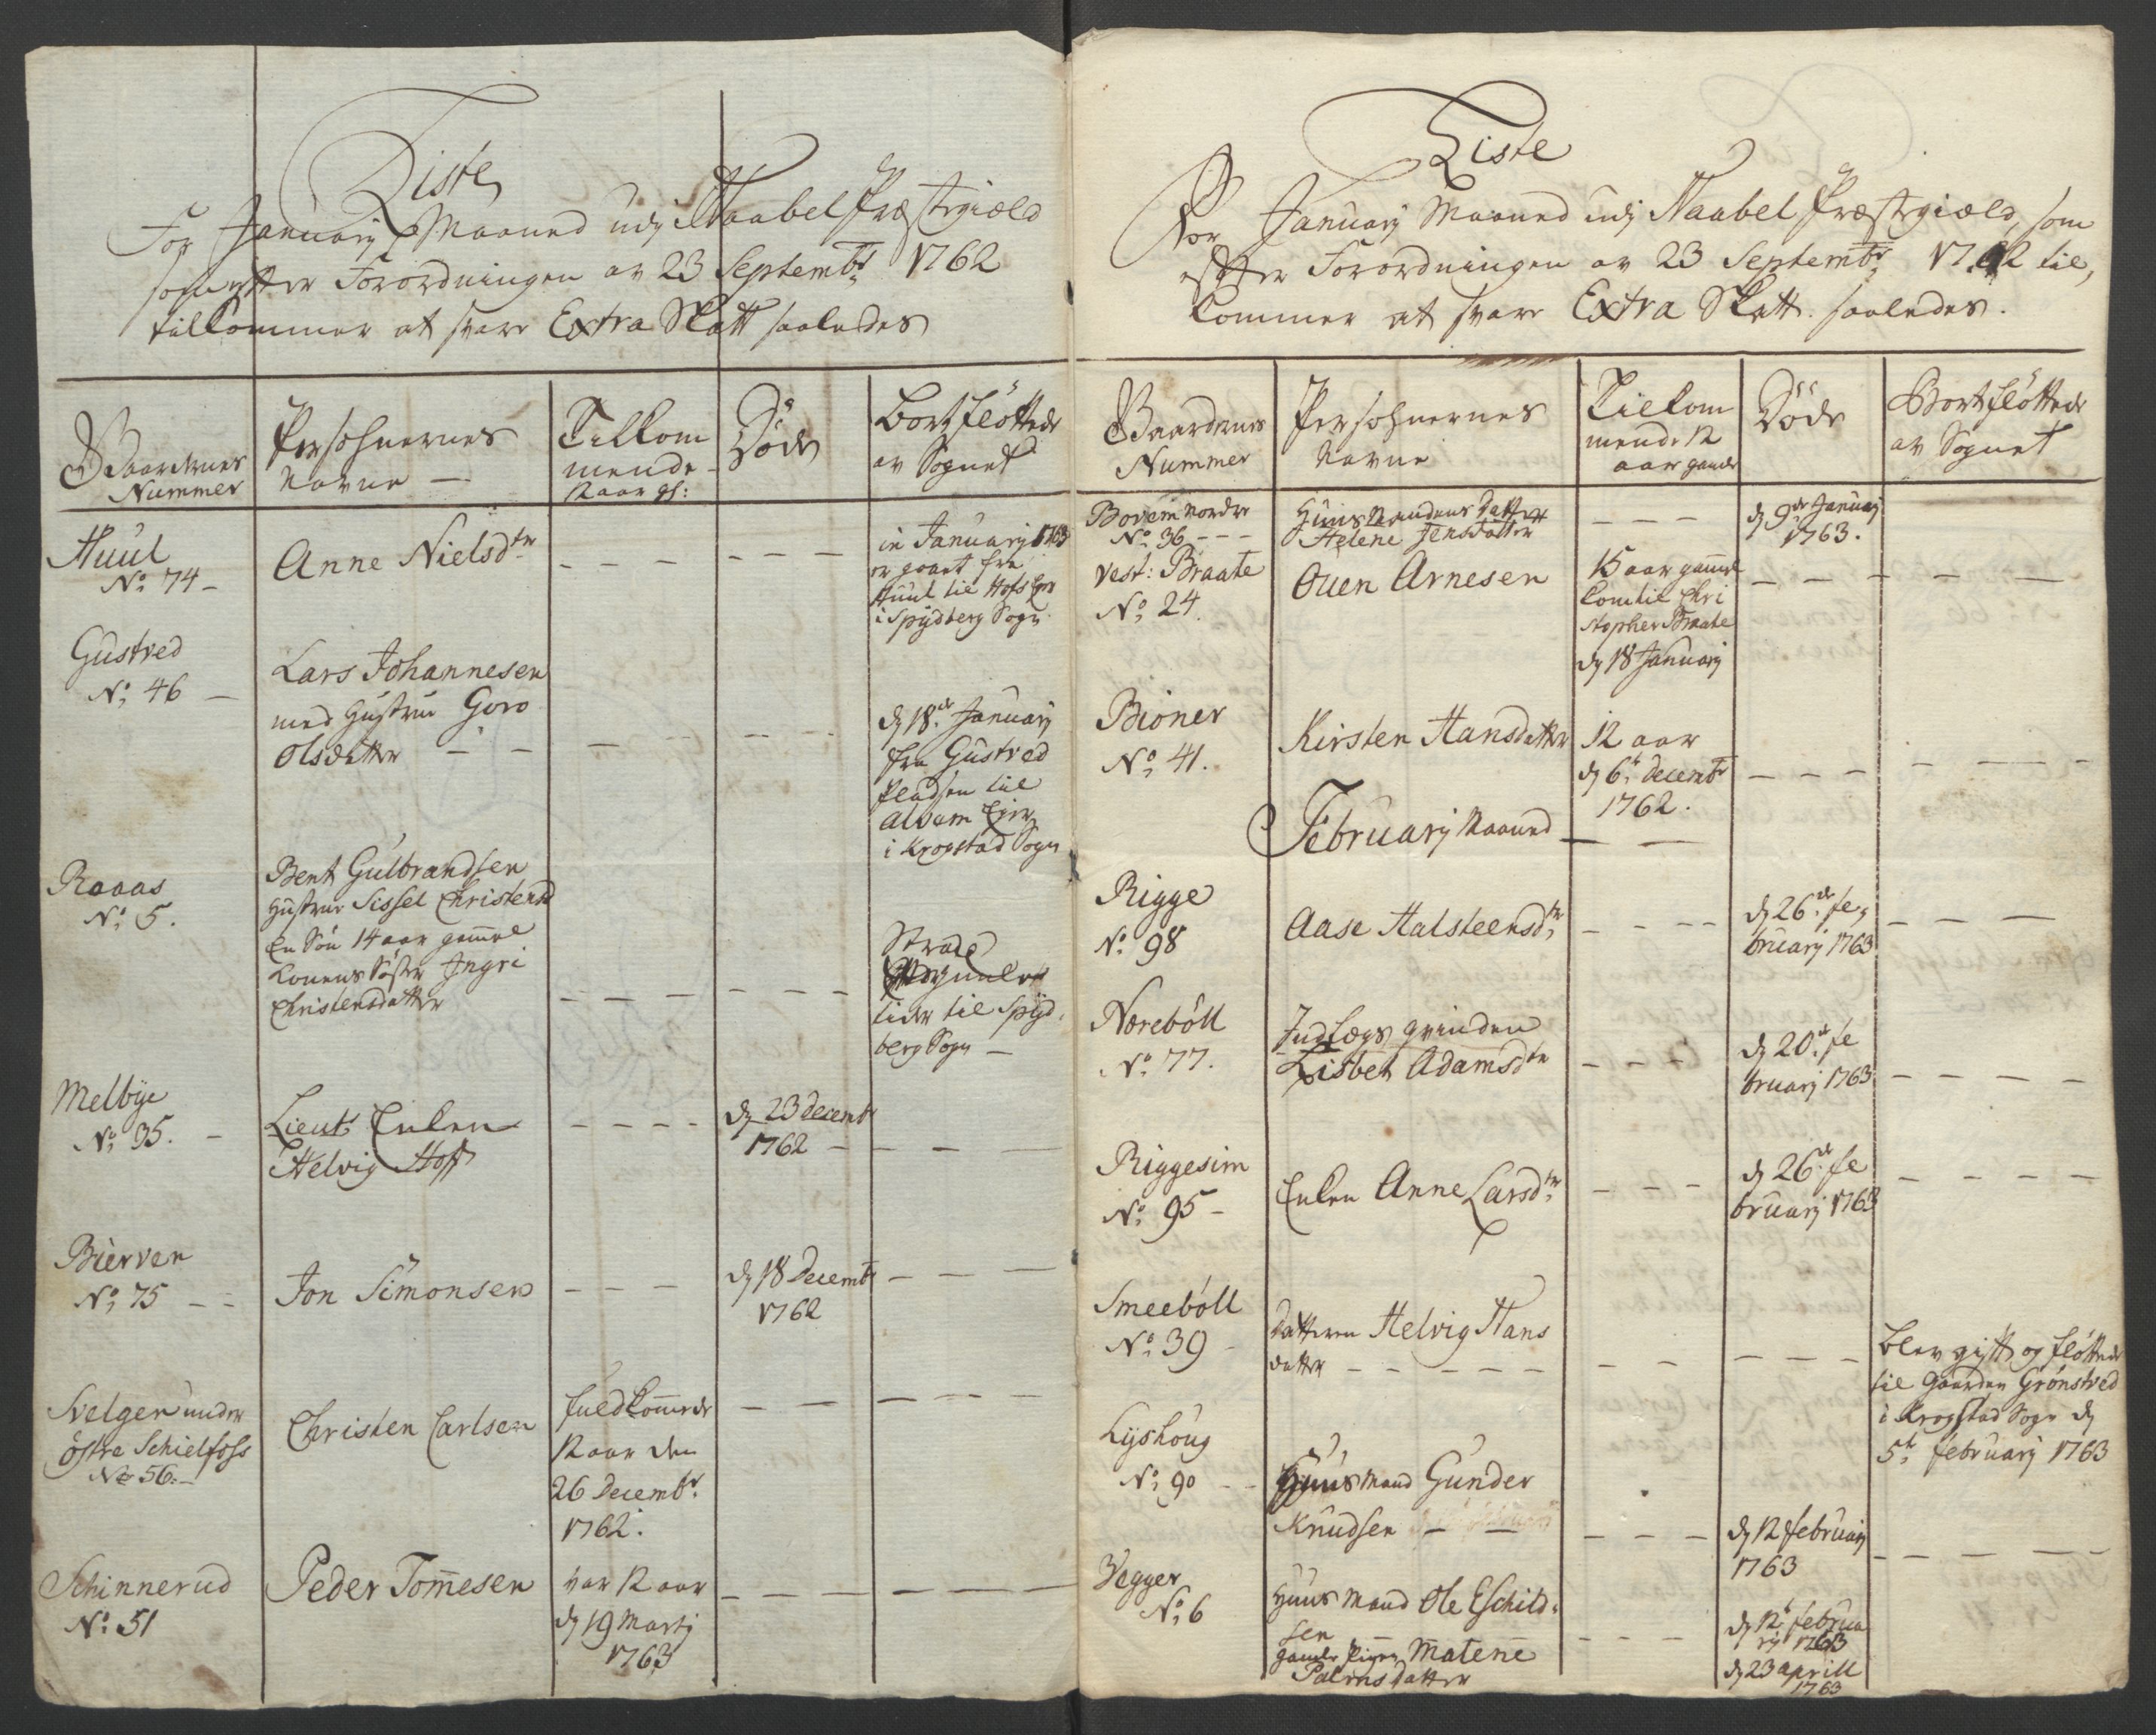 Liste
For Januarij Maaned udj Haabel Præstgiæld
som efter Forordningen av 23 Septembr 1762
tilkommer at svare Extra Skatt saaledes
Gaardernes
Nummer
Persohnernes
Navne —
Tilkom
mende
12 aar gl:
Døde
Bortfløttede
av Sognet
Huul
No 74 –
Anne Nielsdtr
in Januarij 1763
er gaaet fra
Huul til Hofs Eyer
i Spydberg Sogn
Gustred
No 46 –
Lars Johannesen
med Hustrue Goro
Olsdatter – –
d 18de Januarij
fra Gustred
Pladsen til
Alvam Eyer
i Krogstad Sogn
Raaas
No 5.
Bent Gulbrandsen
Hustrue Sissel Christensd
En Søn 14 aar gammel
Konens Søster Ingri
Christensdatter
Strax
tider til Spyd
berg Sogn –
Melbye
No 35. –
Lieut Enken
Helvig Hoff
d 23 decembr
1762 –
Bierven
No 75 – –
Jon Simonsen
d 18 Decembr
1762
Svelgen under
østre Schielfoss
No 56. –
Christen Carlsen
fuldkommede
12 aar den
26 Decembr.
1762.
Schinnerud
No 51
Peder Tommesen
var 12 aar
d 19 Martij
1763
Liste
For Januarij Maaned udj Haabel Præstgiæld, som
efter Forordningen av 23 Septembr 1762 til,
kommer at svare Extra Skatt. saaledes.
Gaardernes
Nummer
Persohnernes
Navne
Tilkom
mende 12
aar gamle
Døde
Bortfløttede
av Sognet
Bovem nordre
No 36 – – –
Huusmandens Datter
Helene Jensdatter
d 9de Januarij
1763.
vest: Braate
No 24.
Ouen Arnesen
15 aar gammel
kom til Chri
stopher Braate
d 18 Januarij
Bioner
No 41.
Kirsten Hansdatter
12 aar
d 6t decembr
1762.
Februarij Maaned
Rigge
No 98
Aase Halsteensdtr
d 26de fe,
bruarij 1763
Norebøll
No 77.
Indlægs qvinden
Lisbet Adamsdtr
d 20de fe
bruarij 1763
Riggesim
No 95 –
Enken Anne Larsdtr
d 26de fe
bruarij 1763
Smeebøll
No 39 –
datteren Helvig Hans
datter
blev gift og fløttede
til gaarden Grønstved
i Krogstad Sogn d
5t februarij 1763
Lyshoug
No 90 – –
Huusmand Gunder
Knudsen – –
d 12 februarij
1763
Vegger
No 6
Huusmand Ole Eschild-
sen
gamle Pigen Matene
Palmsdatter
d 12t februa
rij 1763
d 23 aprill
1763